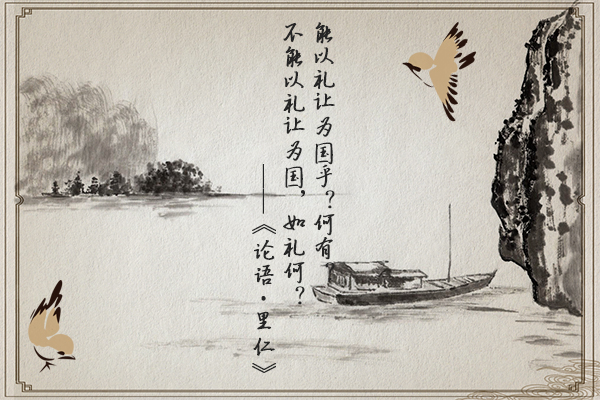 能以礼让为国乎？何有
不能以礼让为国，如礼何？
——《论语·里仁》